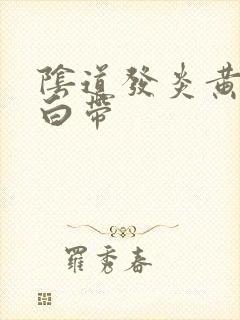 陰道發炎黃
白帶
羅秀春